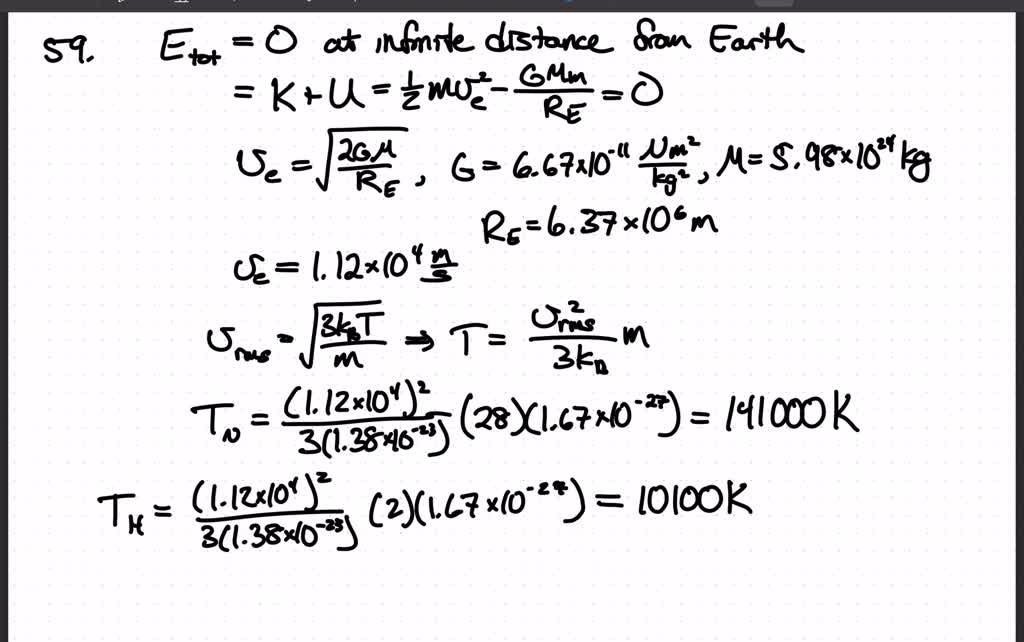 59. E_tot = 0 at infinite distance from Earth
= K + U = ½ mv_e² - GMm/R_E = 0
v_e = √(2GM/R_E), G = 6.67×10⁻¹¹ Nm²/kg², M = 5.98×10²⁴ kg
R_E = 6.37×10⁶ m
v_e = 1.12×10⁴ m/s
v_rms = √(3k_BT/m) ⇒ T = v²_rms/3k_B m
T_N = (1.12×10⁴)²/3(1.38×10⁻²³) (28)(1.67×10⁻²⁷) = 141000K
T_H = (1.12×10⁴)²/3(1.38×10⁻²³) (2)(1.67×10⁻²⁷) = 10100K